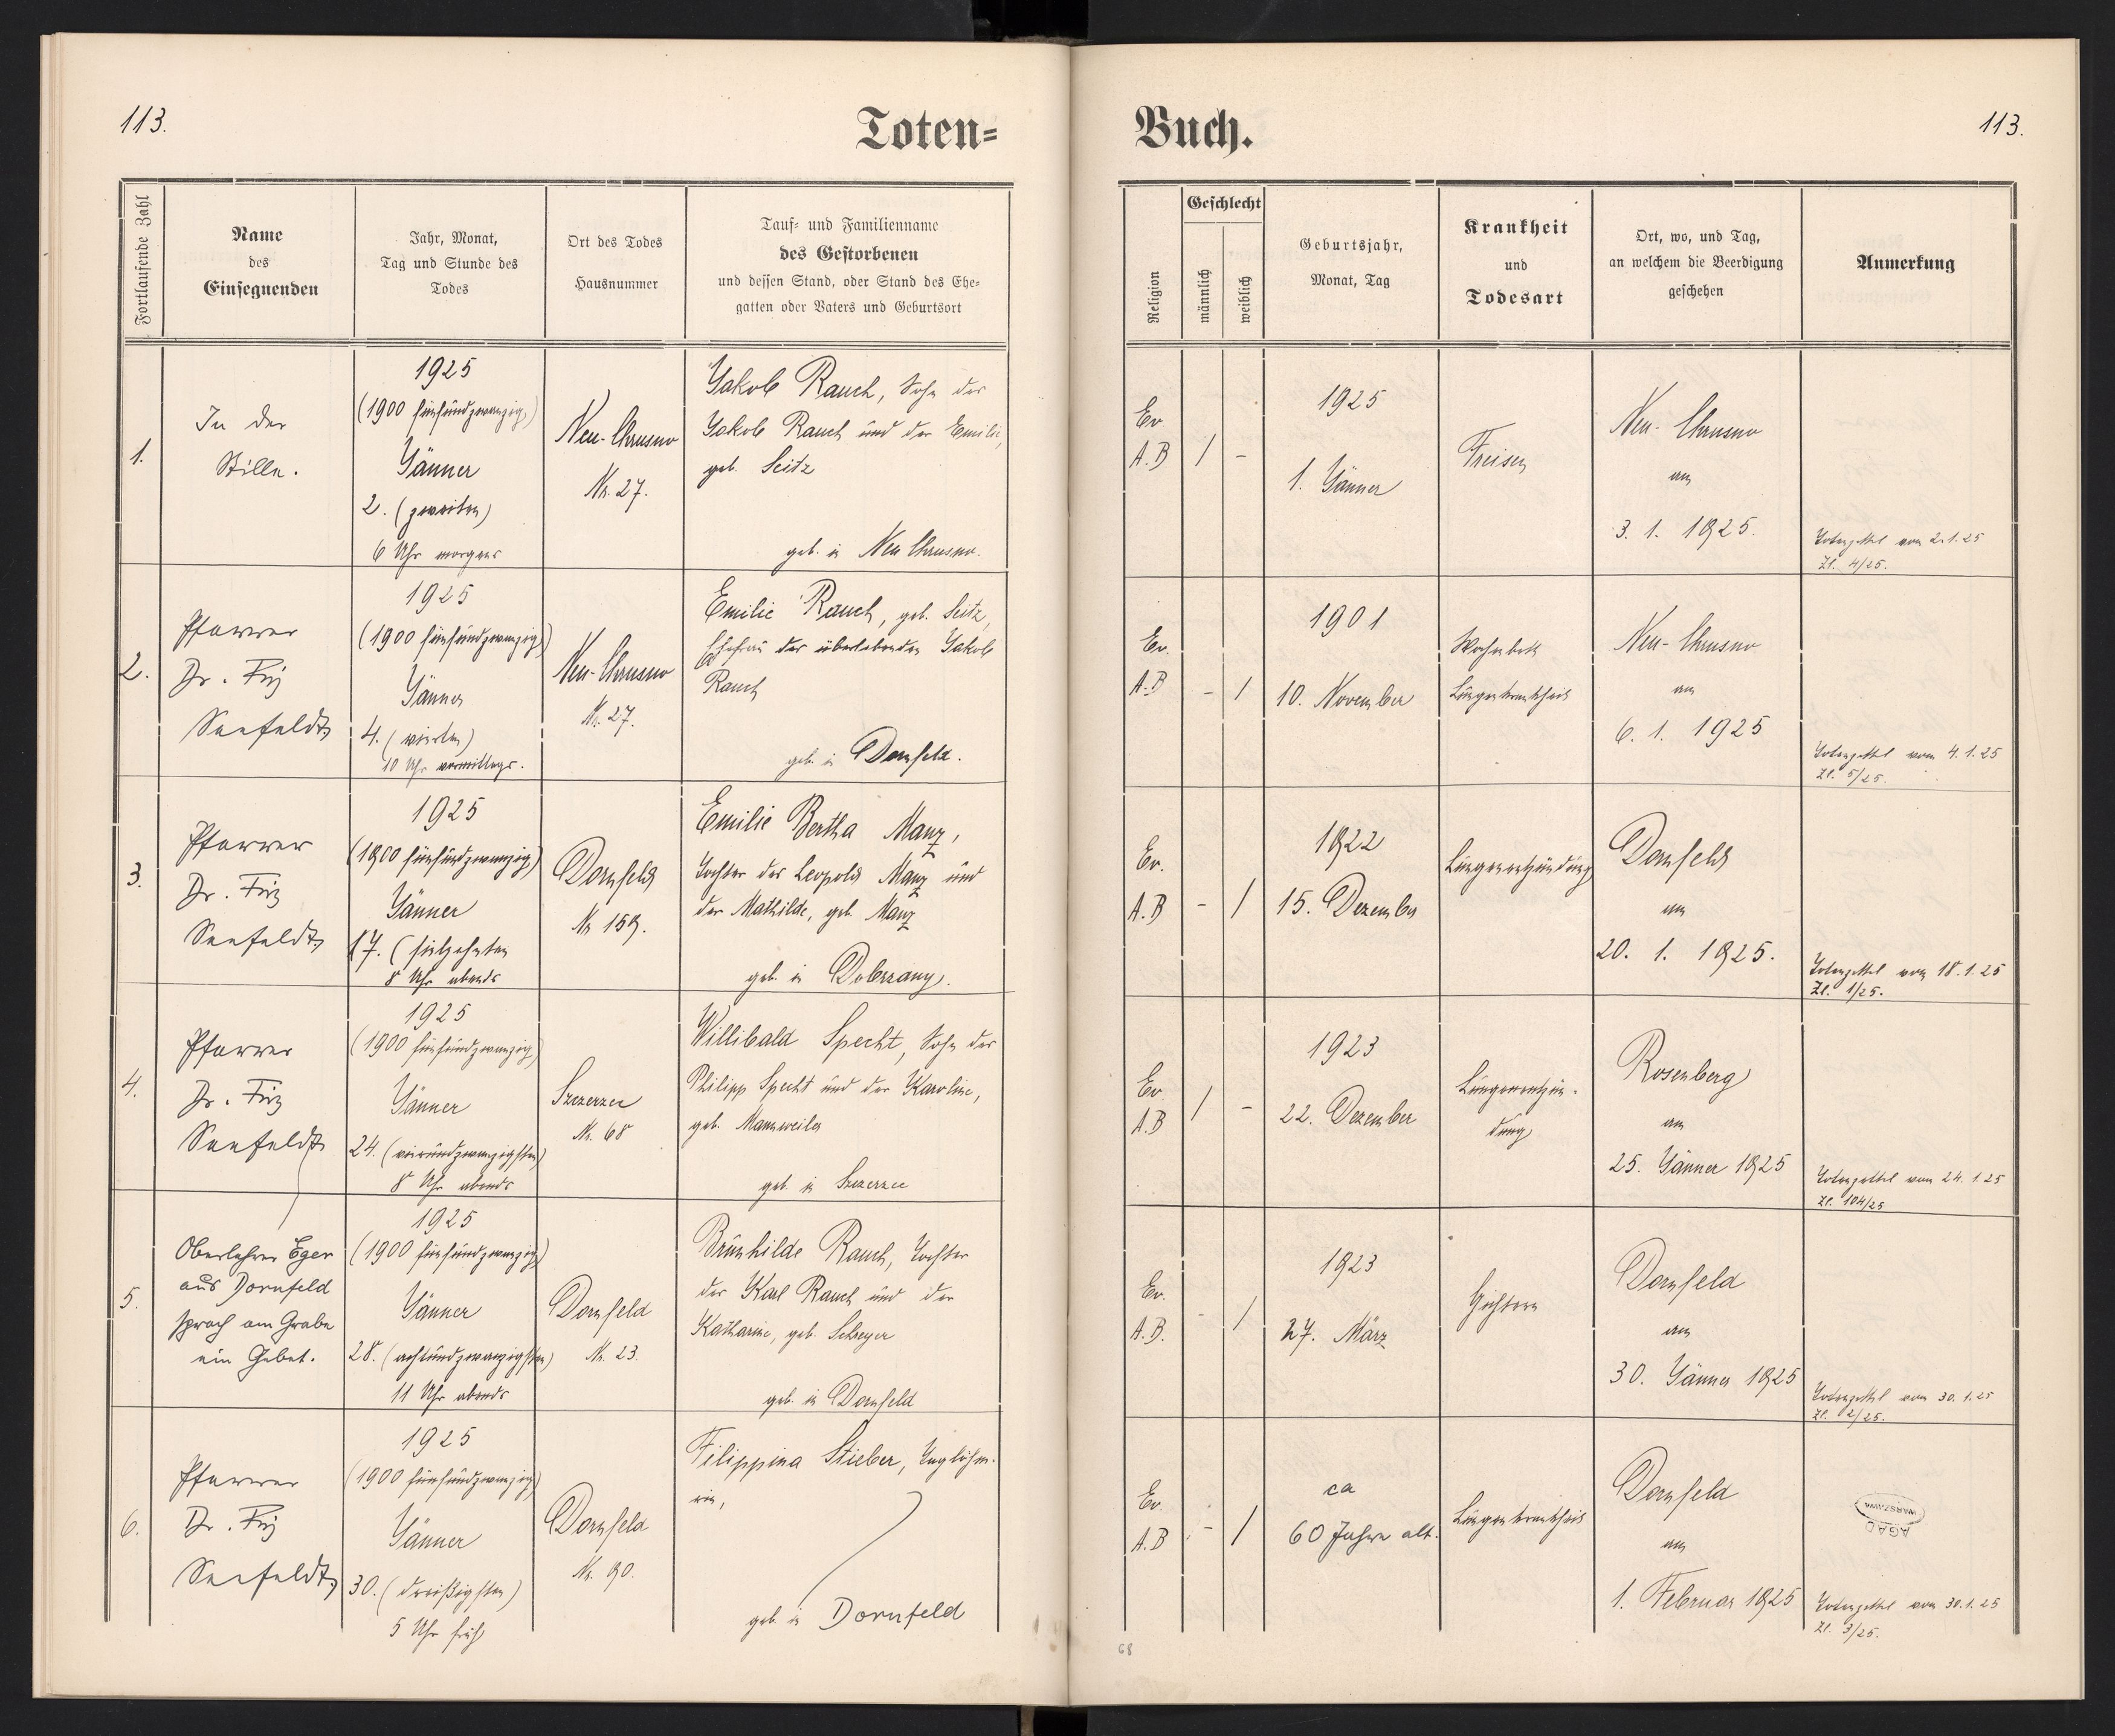 113.
Toten=
Fortlaufende Zahl
Name
des
Einsegnenden
Jahr, Monat,
Tag und Stunde des
Todes
Ort des Todes
Hausnummer
Tauf= und Familienname
des Gestorbenen
und dessen Stand, oder Stand des Ehe=
gatten oder Vaters und Geburtsort
1.
In der
Stille.
1925
(1900 fünfundzwanzig)
Jänner
2. (zweiten)
6 Uhr morgens
Neu-Chrusno
Nr. 27.
Jakob Rauch, Sohn des
Jakob Rauch und der Emilie,
geb. Seitz
geb. in Neu Chrusno.
2.
Pfarrer
Dr. Friz
Seefeldt
1925
(1900 fünfundzwanzig)
Jänner
4. (vierten)
10 Uhr vormittags.
Neu-Chrusno
Nr. 27.
Emilie Rauch, geb. Seitz,
Ehefrau des überlebenden Jakob
Rauch
geb. in Dornfeld.
3.
Pfarrer
Dr. Friz
Seefeldt
1925
(1900 fünfundzwanzig)
Jänner
17. (siebzehnten
8 Uhr abends
Dornfeld
Nr 159.
Emilie Bertha Manz,
Tochter des Leopold Manz und
der Mathilde, geb. Manz
geb. in Dobrzany.
4.
Pfarrer
Dr. Friz
Seefeldt
1925
(1900 fünfundzwanzig)
Jänner
24. (vierundzwanzigsten)
8 Uhr abends
Szczerzec
Nr. 68
Willibald Specht, Sohn des
Philipp Specht und der Karoline,
geb. Mannweiler
geb. in Szczerzec
5.
Oberlehrer Eger
aus Dornfeld
sprach am Grabe
ein Gebet.
1925
(1900 fünfundzwanzig)
Jänner
28. (achtundzwanzigsten)
11 Uhr abends
Dornfeld
Nr. 23.
Brünhilde Rauch, Tochter
des Karl Rauch und der
Katharine, geb. Schreyer
geb. in Dornfeld
6.
Pfarrer
Dr. Friz
Seefeldt
1925
(1900 fünfundzwanzig)
Jänner
30. (dreißigsten)
5 Uhr früh
Dornfeld
Nr. 90.
Filippina Stieber, Taglöhne-
rin,
geb. in Dornfeld
Buch.
113.
Religion
Geschlecht
männlich
weiblich
Geburtsjahr,
Monat, Tag
Krankheit
und
Todesart
Ort, wo, und Tag,
an welchem die Beerdigung
geschehen
Anmerkung
Ev
A.B
/
-
1925
1. Jänner
Freisen
Neu-Chrusno
am
3. 1. 1925.
Totenzettel vom 2.1.25
Zl. 4/25.
Ev.
A.B
-
/
1901
10. November
Wochenbett
Lungenkrankheit
Neu-Chrusno
am
6. 1. 1925
Totenzettel vom 4.1.25
Zl. 5/25.
Ev.
A.B
-
/
1922
15. Dezember
Lungenentzündung
Dornfeld
am
20. 1. 1925.
Totenzettel vom 18.1.25
Zl. 1/25.
Ev.
A.B
/
-
1923
22. Dezember
Lungenentzün-
dung
Rosenberg
am
25. Jänner 1925
Totenzettel vom 24.1.25
Zl. 104/25
Ev.
A.B.
-
/
1923
27. März
Gichtern
Dornfeld
am
30. Jänner 1925
Totenzettel vom 30.1.25
Zl. 2/25.
Ev.
A.B
-
/
ca
60 Jahre alt.
Lungenkrankheit
Dornfeld
am
1. Februar 1925
AGAD
WARSZAWA
Totenzettel vom 30.1.25
Zl. 3/25.
68